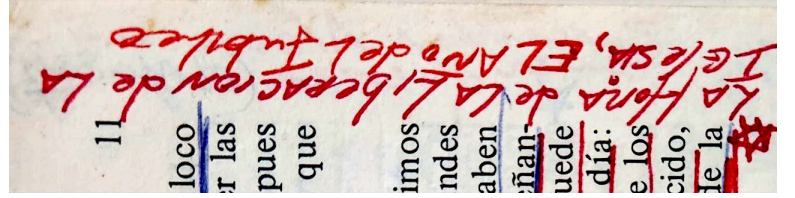 LA HORA de LA LibeRACion de LA
IGlesiA, EL AÑo deL Jubileo
11
loco
er las
pues
que
imos
ndes
aben
eñan-
uede
día:
e los
cido,
de la